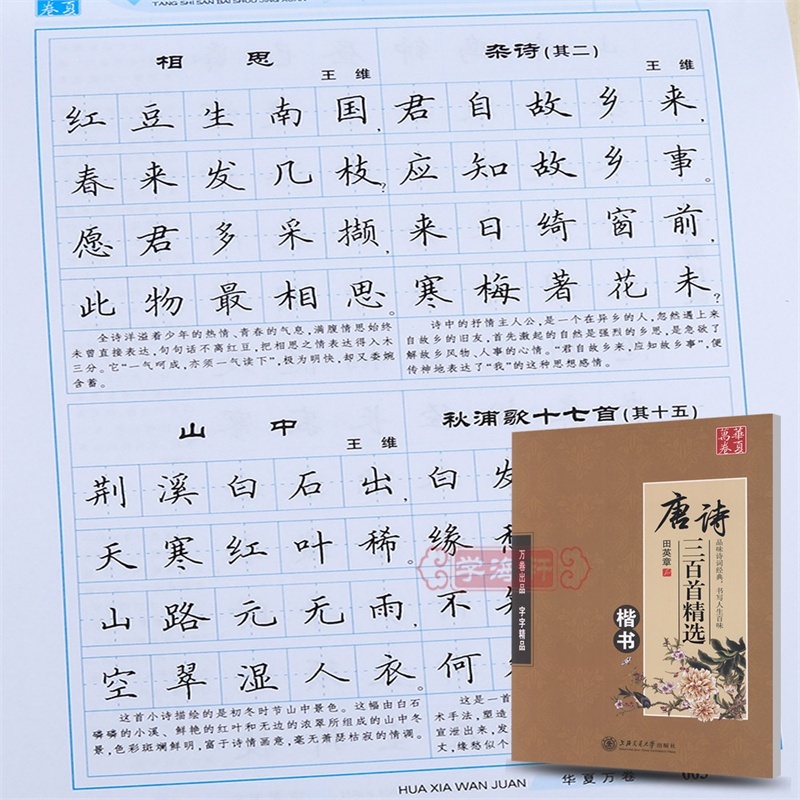 卷夏
TANG SHI SAN BAI SHOU JING XUAN
相思
王维
红豆生南国，
春来发几枝？
愿君多采撷，
此物最相思。
全诗洋溢着少年的热情、青春的气息，满腹情思始终
未曾直接表达，句句话不离红豆，把相思之情表达得入木
三分。它“一气呵成，亦须一气读下”，极为明快，却又委婉
含蓄。
杂诗(其二)
王维
君自故乡来，
应知故乡事。
来日绮窗前，
寒梅著花未？
诗中的抒情主人公，是一个在异乡的人，忽然遇上来
自故乡的旧友，首先激起的自然是强烈的乡思，是急欲了
解故乡风物、人事的心情。“君自故乡来，应知故乡事”，便
传神地表达了“我”的这种思想感情。
山中
王维
荆溪白石出，
天寒红叶稀。
山路元无雨，
空翠湿人衣。
这首小诗描绘的是初冬时节山中景色。这幅由白石
磷磷的小溪、鲜艳的红叶和无边的浓翠所组成的山中冬
景，色彩斑斓鲜明，富于诗情画意，毫无萧瑟枯寂的情调。
秋浦歌十七首(其十五)
白发
缘
不
何
这是一首
术手法，塑造
宣泄出来，发
丈，缘愁似个
HUA XIA WAN JUAN
华夏万卷
005
学海轩
華夏
萬卷
唐诗
三百首精选
品味诗词经典，书写人生百味
田英章
楷书
万卷出品 字字精品
上海交通大学出版社